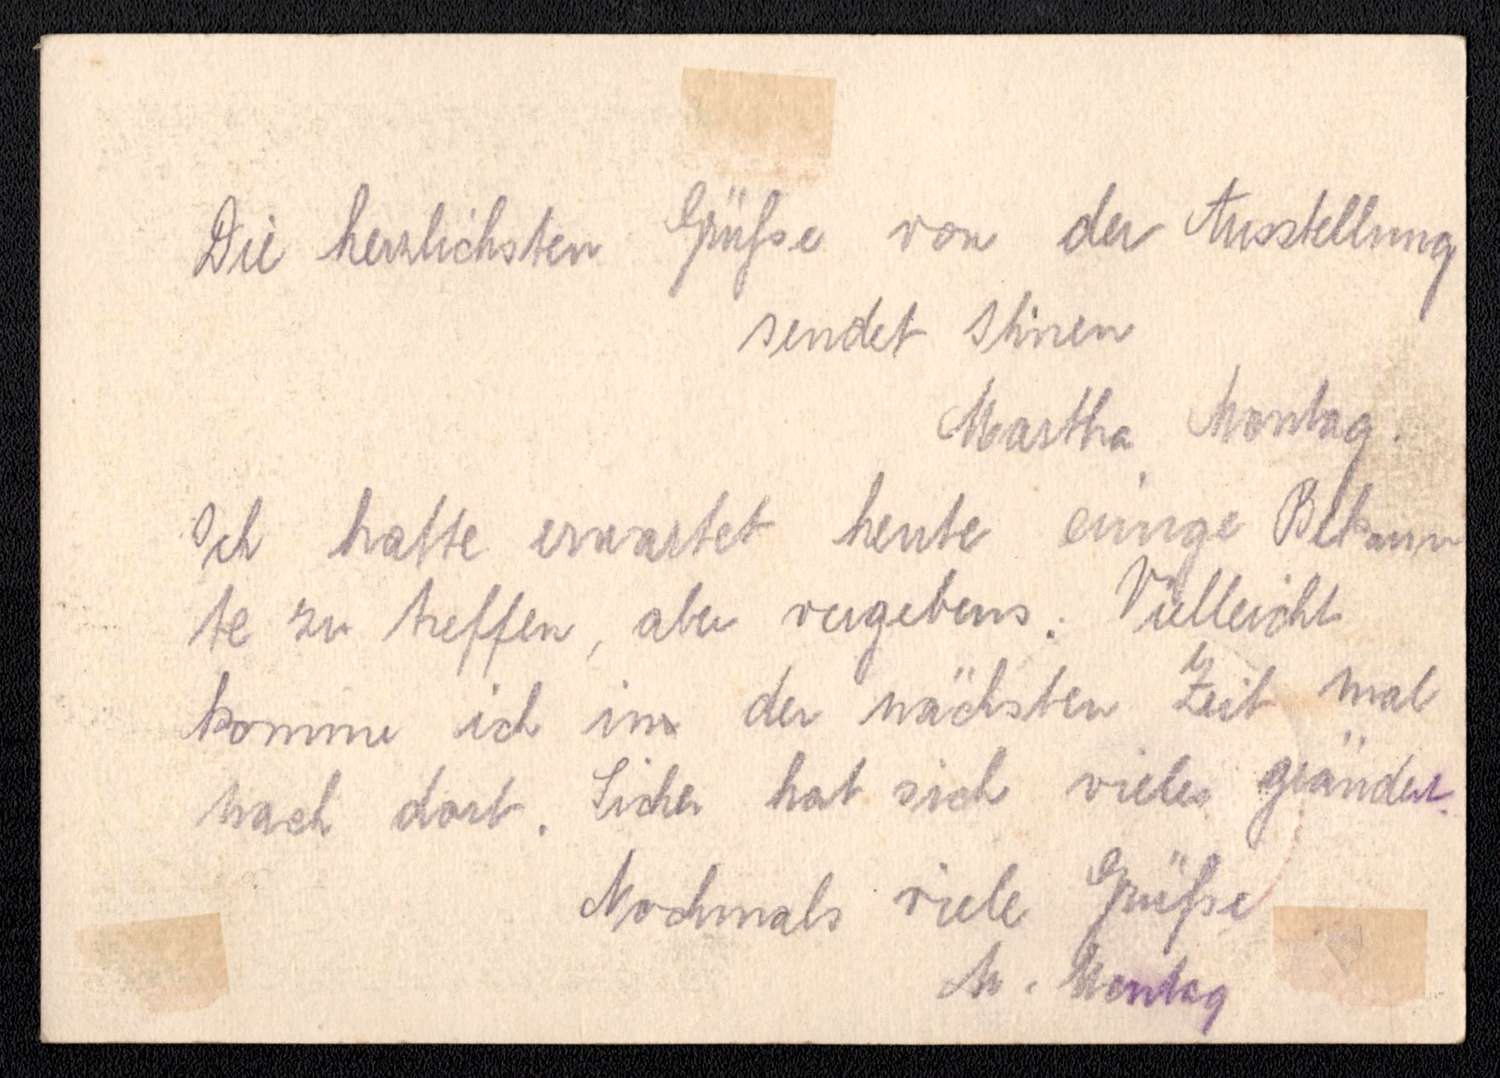 Die herzlichsten Grüße von der Ausstellung
sendet Ihnen
Martha Montag.
Ich hatte erwartet heute einige Bekann
te zu treffen, aber vergebens. Vielleicht
komme ich in der nächsten Zeit mal
nach dort. Sicher hat sich vieles geändert.
Nochmals viele Grüße
M. Montag